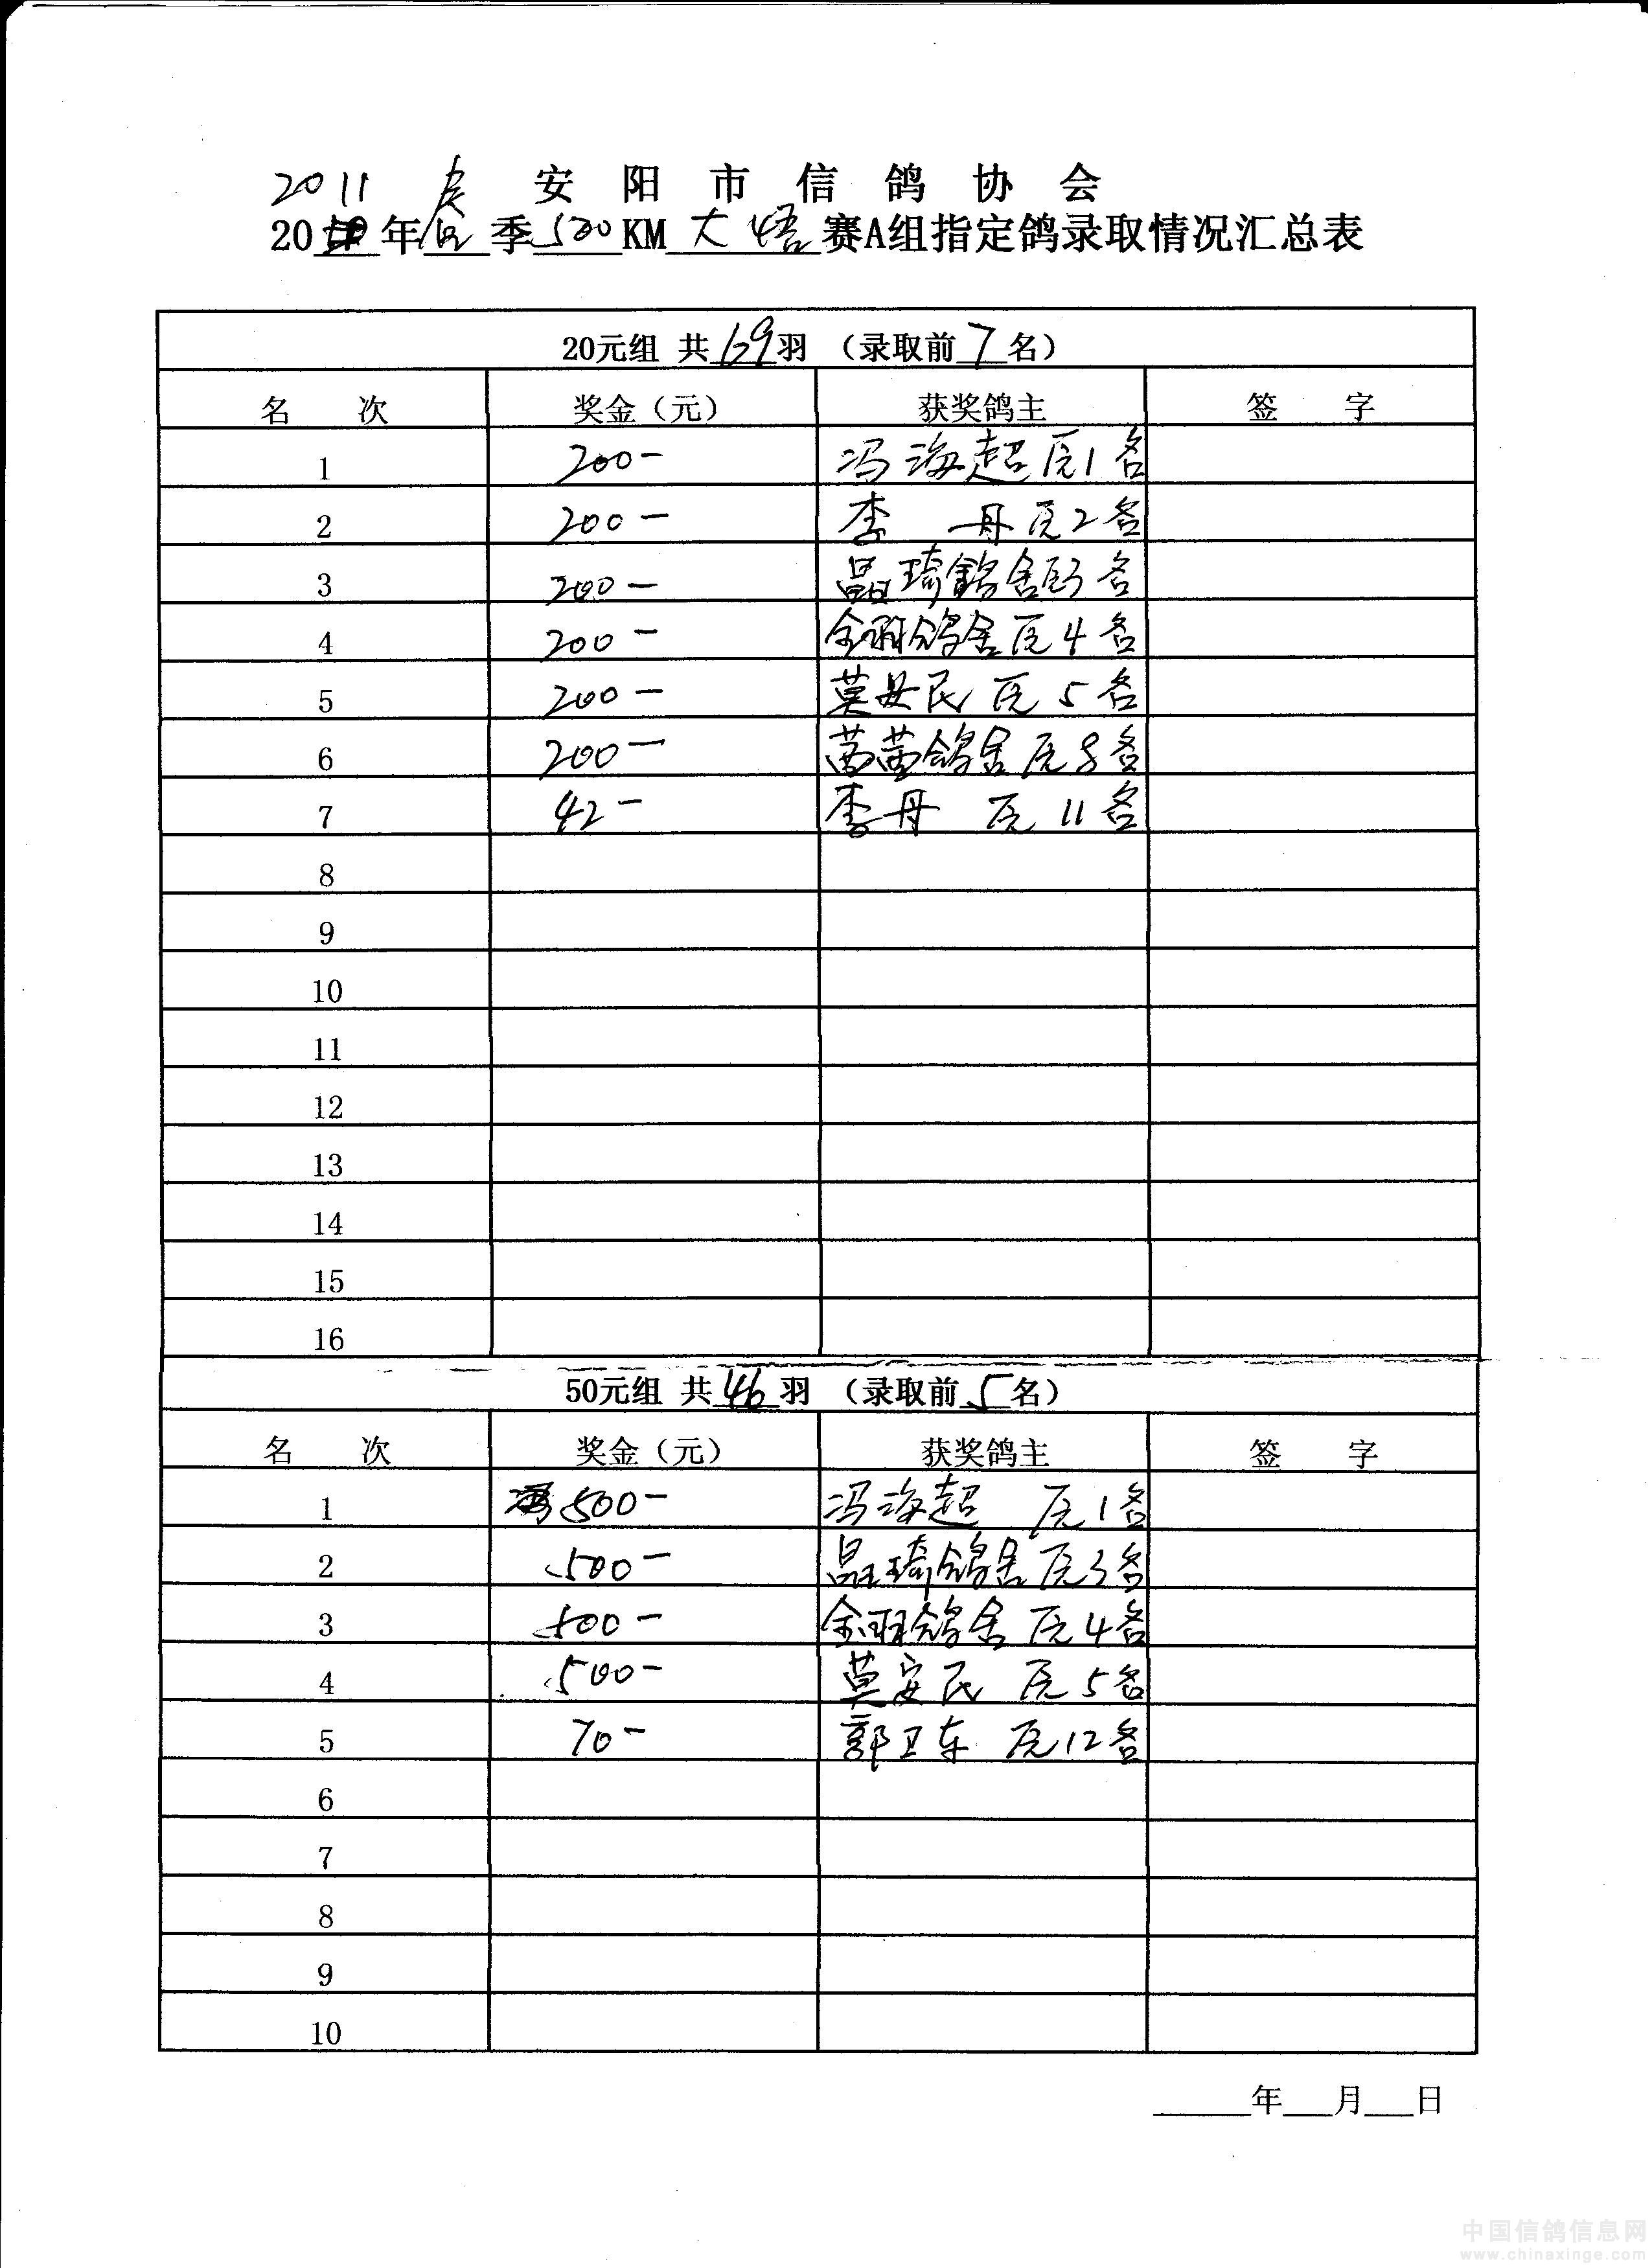 2011 安阳市信鸽协会
20 年 季500KM大悟赛A组指定鸽录取情况汇总表
20元组 共69羽 （录取前7名）
名 次 奖金（元） 获奖鸽主 签 字
1 200- 冯海超 原1名
2 200- 李 丹 原2名
3 200- 晶琦鸽舍 原3名
4 200- 鸽舍 原4名
5 200- 莫安民 原5名
6 200- 茜茜鸽舍 原8名
7 42- 李丹 原11名
8
9
10
11
12
13
14
15
16
50元组 共46羽 （录取前5名）
名 次 奖金（元） 获奖鸽主 签 字
1 500- 冯海超 原1名
2 500- 晶琦鸽舍 原3名
3 500- 鸽舍 原4名
4 500- 莫安民 原5名
5 70- 郭卫东 原12名
6
7
8
9
10
年 月 日
中国信鸽信息网
www.chinaxinge.com